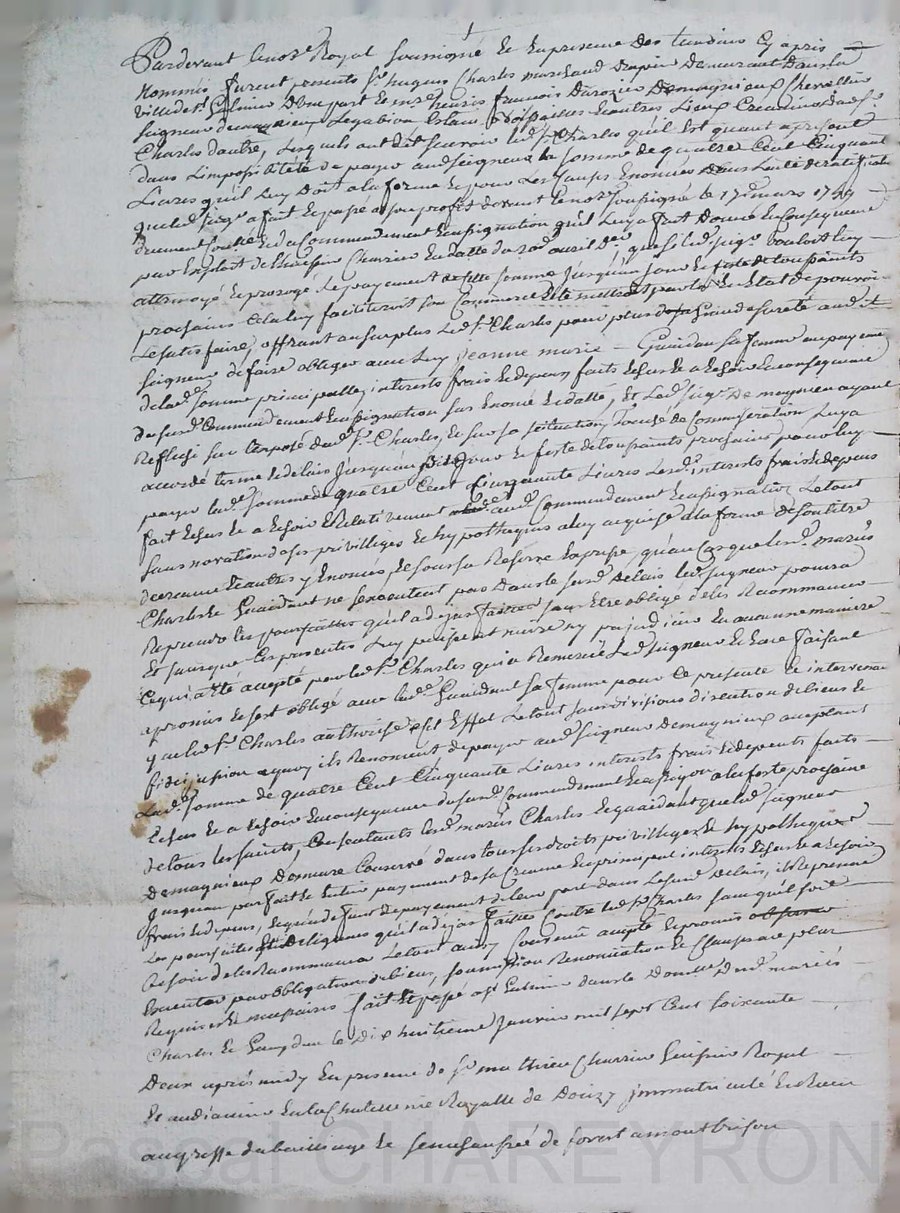 Pardevant le nore Royal soussigné et en presence des temoins cy apres
Nommés furent presents sr hugues Charles marchand drapier demeurant dans la
ville de st Estienne d'une part et mre henris francois Derozier Demagnieux Chevallier
Seigneur demagnieux Lagabion et autres Lieux Creancier dud sr
Charles d'autre, Lesquels ont dit scavoir led sr Charles qu'il est quant a present
dans L'impossibilité de payer aud seigneur la somme de quatre Cent Cinquante
Livres qu'il luy doit a la forme et pour Les Causes Enoncées dans
que led seigr a fait et passé a son profit devant le nore soussigné le 17e mars 1759
du Commandement et assignation qu'il luy a fait Donner en Consequence
par Exploit de Lhuissier Charrier En datte du avril que si led seigr vouloit luy
attermoyer et proroger le payement de cette somme jusqu'au jour et feste de toussaints
prochains cela luy faciliteroit son Commerce et le mettroit par la En Etat de pouvoir
le satisfaire, offrant au surplus led sr Charles pour plus grande sureté aud
seigneur de faire obliger avec luy jeanne marie Guaidan sa femme au payement
de lad somme principalle, interests frais et depens faits et a faire En consequence
du susd Commandement et assignation sus Enoncé et datté, Et led seigr De magnieux ayant
Reflechi sur l'exposé dud sr Charles, et sur sa petition, Touché de Commiseration Luy a
accordé terme et delais jusqu'au jour et feste de toussaints prochains pour luy
payer lad somme de quatre Cent Cinquante Livres lesd interests frais et depens
fait et a faire Relativement aud Commandement et assignation Le tout
sans novation de ses privilleges et hypotheques a luy acquise a la forme de son titre
de creance et autres y Enoncés, et sous la Reserve Expresse, qu'au Cas que lesd mariés
Charles et Guaidant ne s'executent pas Dans le susd delais led seigneur pourra
Reprendre les poursuittes qu'il a deja faittes sans Etre obligé de les Recommancer
Et sans que Ces presentes Luy puissent nuire ny prejudicier En aucunne maniere
Ce qui a été accepté par led sr Charles qui a Remercié led seigneur et luy faisant
a promis et s'est obligé avec lad Guaidant sa femme pour Ce presente et intervenue
que led sr Charles authorise a cet Effet Le tout sans division discution de biens et
fidejussion a quoy ils Renoncent de payer aud seigneur Demagnieux acceptant
Lad somme de quatre Cent Cinquante Livres interests frais et depents faits
et a faire En consequence du susd Commandement et assignation a la feste prochaine
de tous les saints, Consentants lesd mariés Charles et guaidant que led seigneur
Demagnieux Demeure Conservé dans tous ses droits privilleges et hypotheques
jusqu'au parfait et Entier payement de sa Creance En principal interests et a faire
frais et depens, Et qu'a defaut de payement de leur part dans Le susd delais, il Reprenne
Les poursuites et Diligences qu'il a deja faittes Contre led sr Charles sans qu'il soit
Besoin de les Recommancer Le tout ainsy Convenu accepté et promis observer
Executer par obligation de biens, soumission Renonciation et Clauses a ce plus
Requises et necessaires fait et passé a st Estienne dans le Domicile desd mariés
Charles et Gaydan le Dix huitieme janvier mil sept Cent soixante
Deux apres midy En presence de sr mathieu Charrier huissier Royal
Et audiancier En la Chatellenie Royalle de Donzy jmmatriculé Et Receu
au greffe du bailliage et senechaussée de forest a montbrison
Pascal CHAREYRON